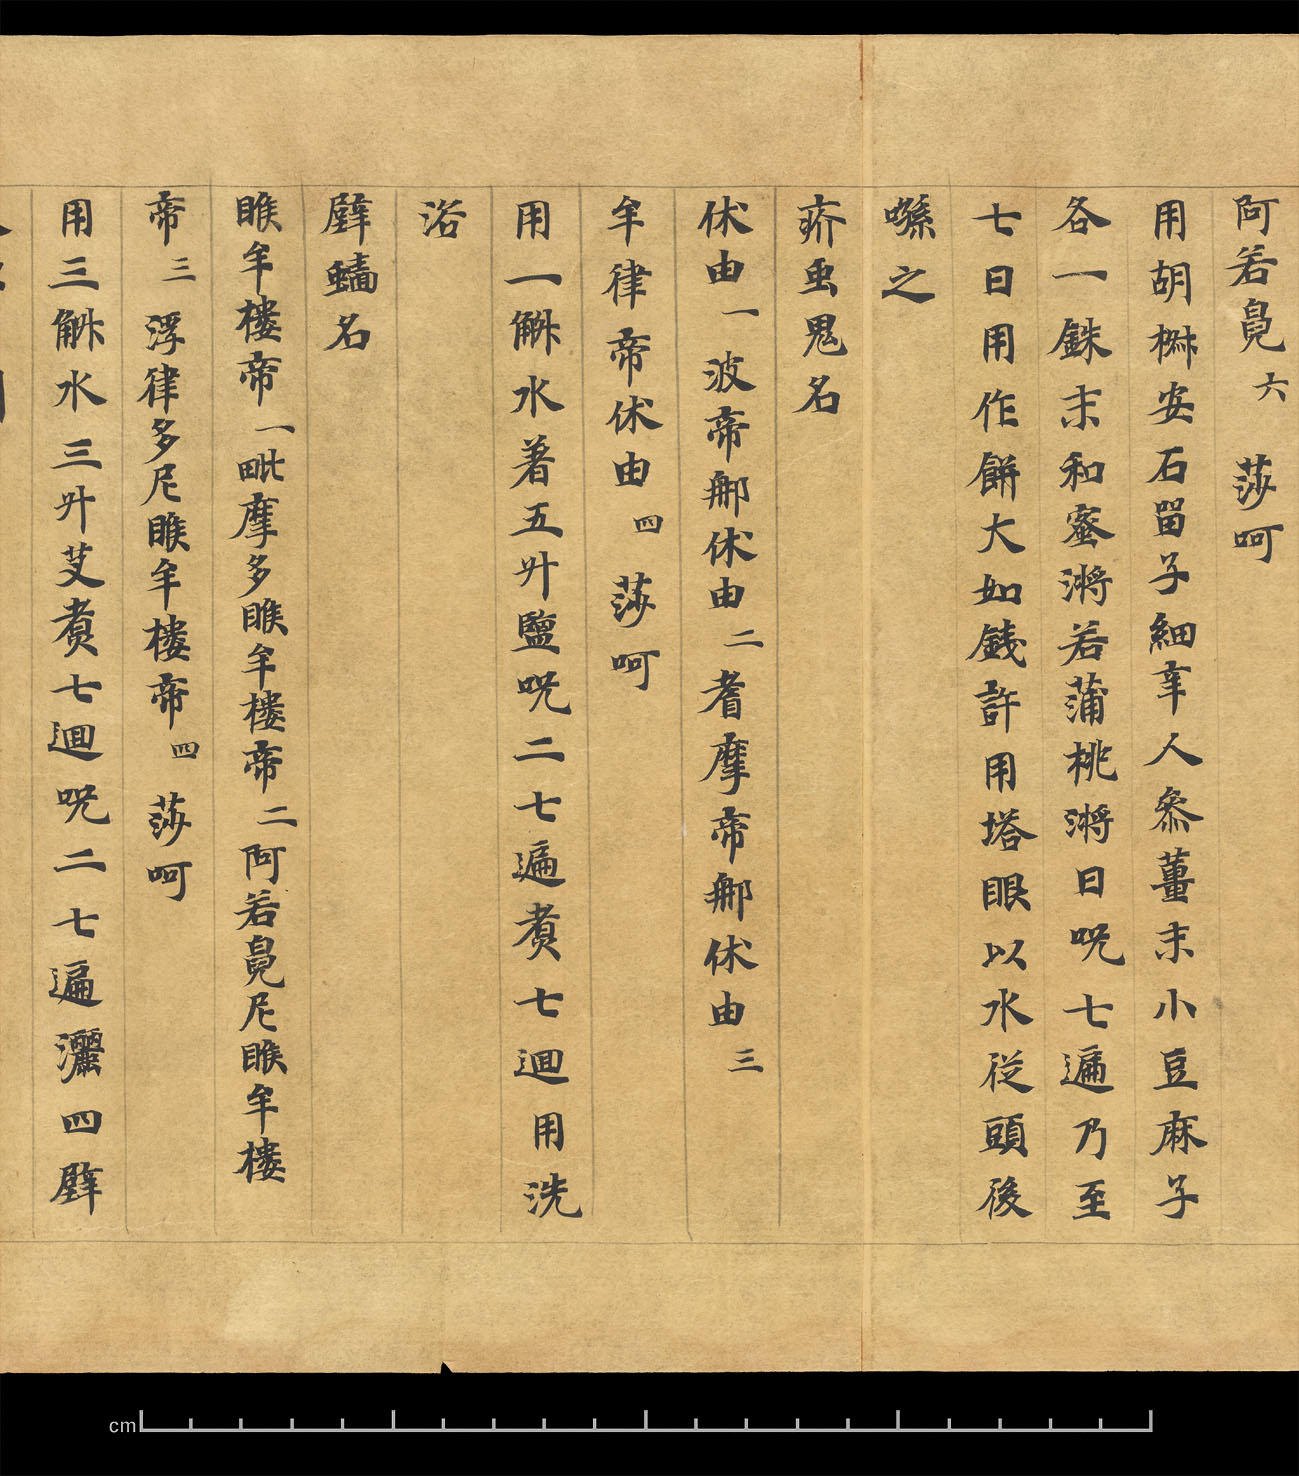 阿若㝹六 莎呵
用胡椒安石留子細辛人參薑末小豆麻子
各一銖末和蜜漿若蒲桃漿日呪七遍乃至
七日用作餅大如錢許用塔眼以水從頭後
噀之
疥虫鬼名
休由一波帝𨚗休由二耆摩帝𨚗休由三
牟律帝休由四 莎呵
用一斛水著五升鹽呪二七遍煑七迴用洗
浴
壁蟢名
睺牟樓帝一毗摩多睺牟樓帝二阿若㝹尼睺牟樓
帝三 浮律多尼睺牟樓帝四 莎呵
用三斛水三升芟煑七迴呪二七遍灑四壁
cm